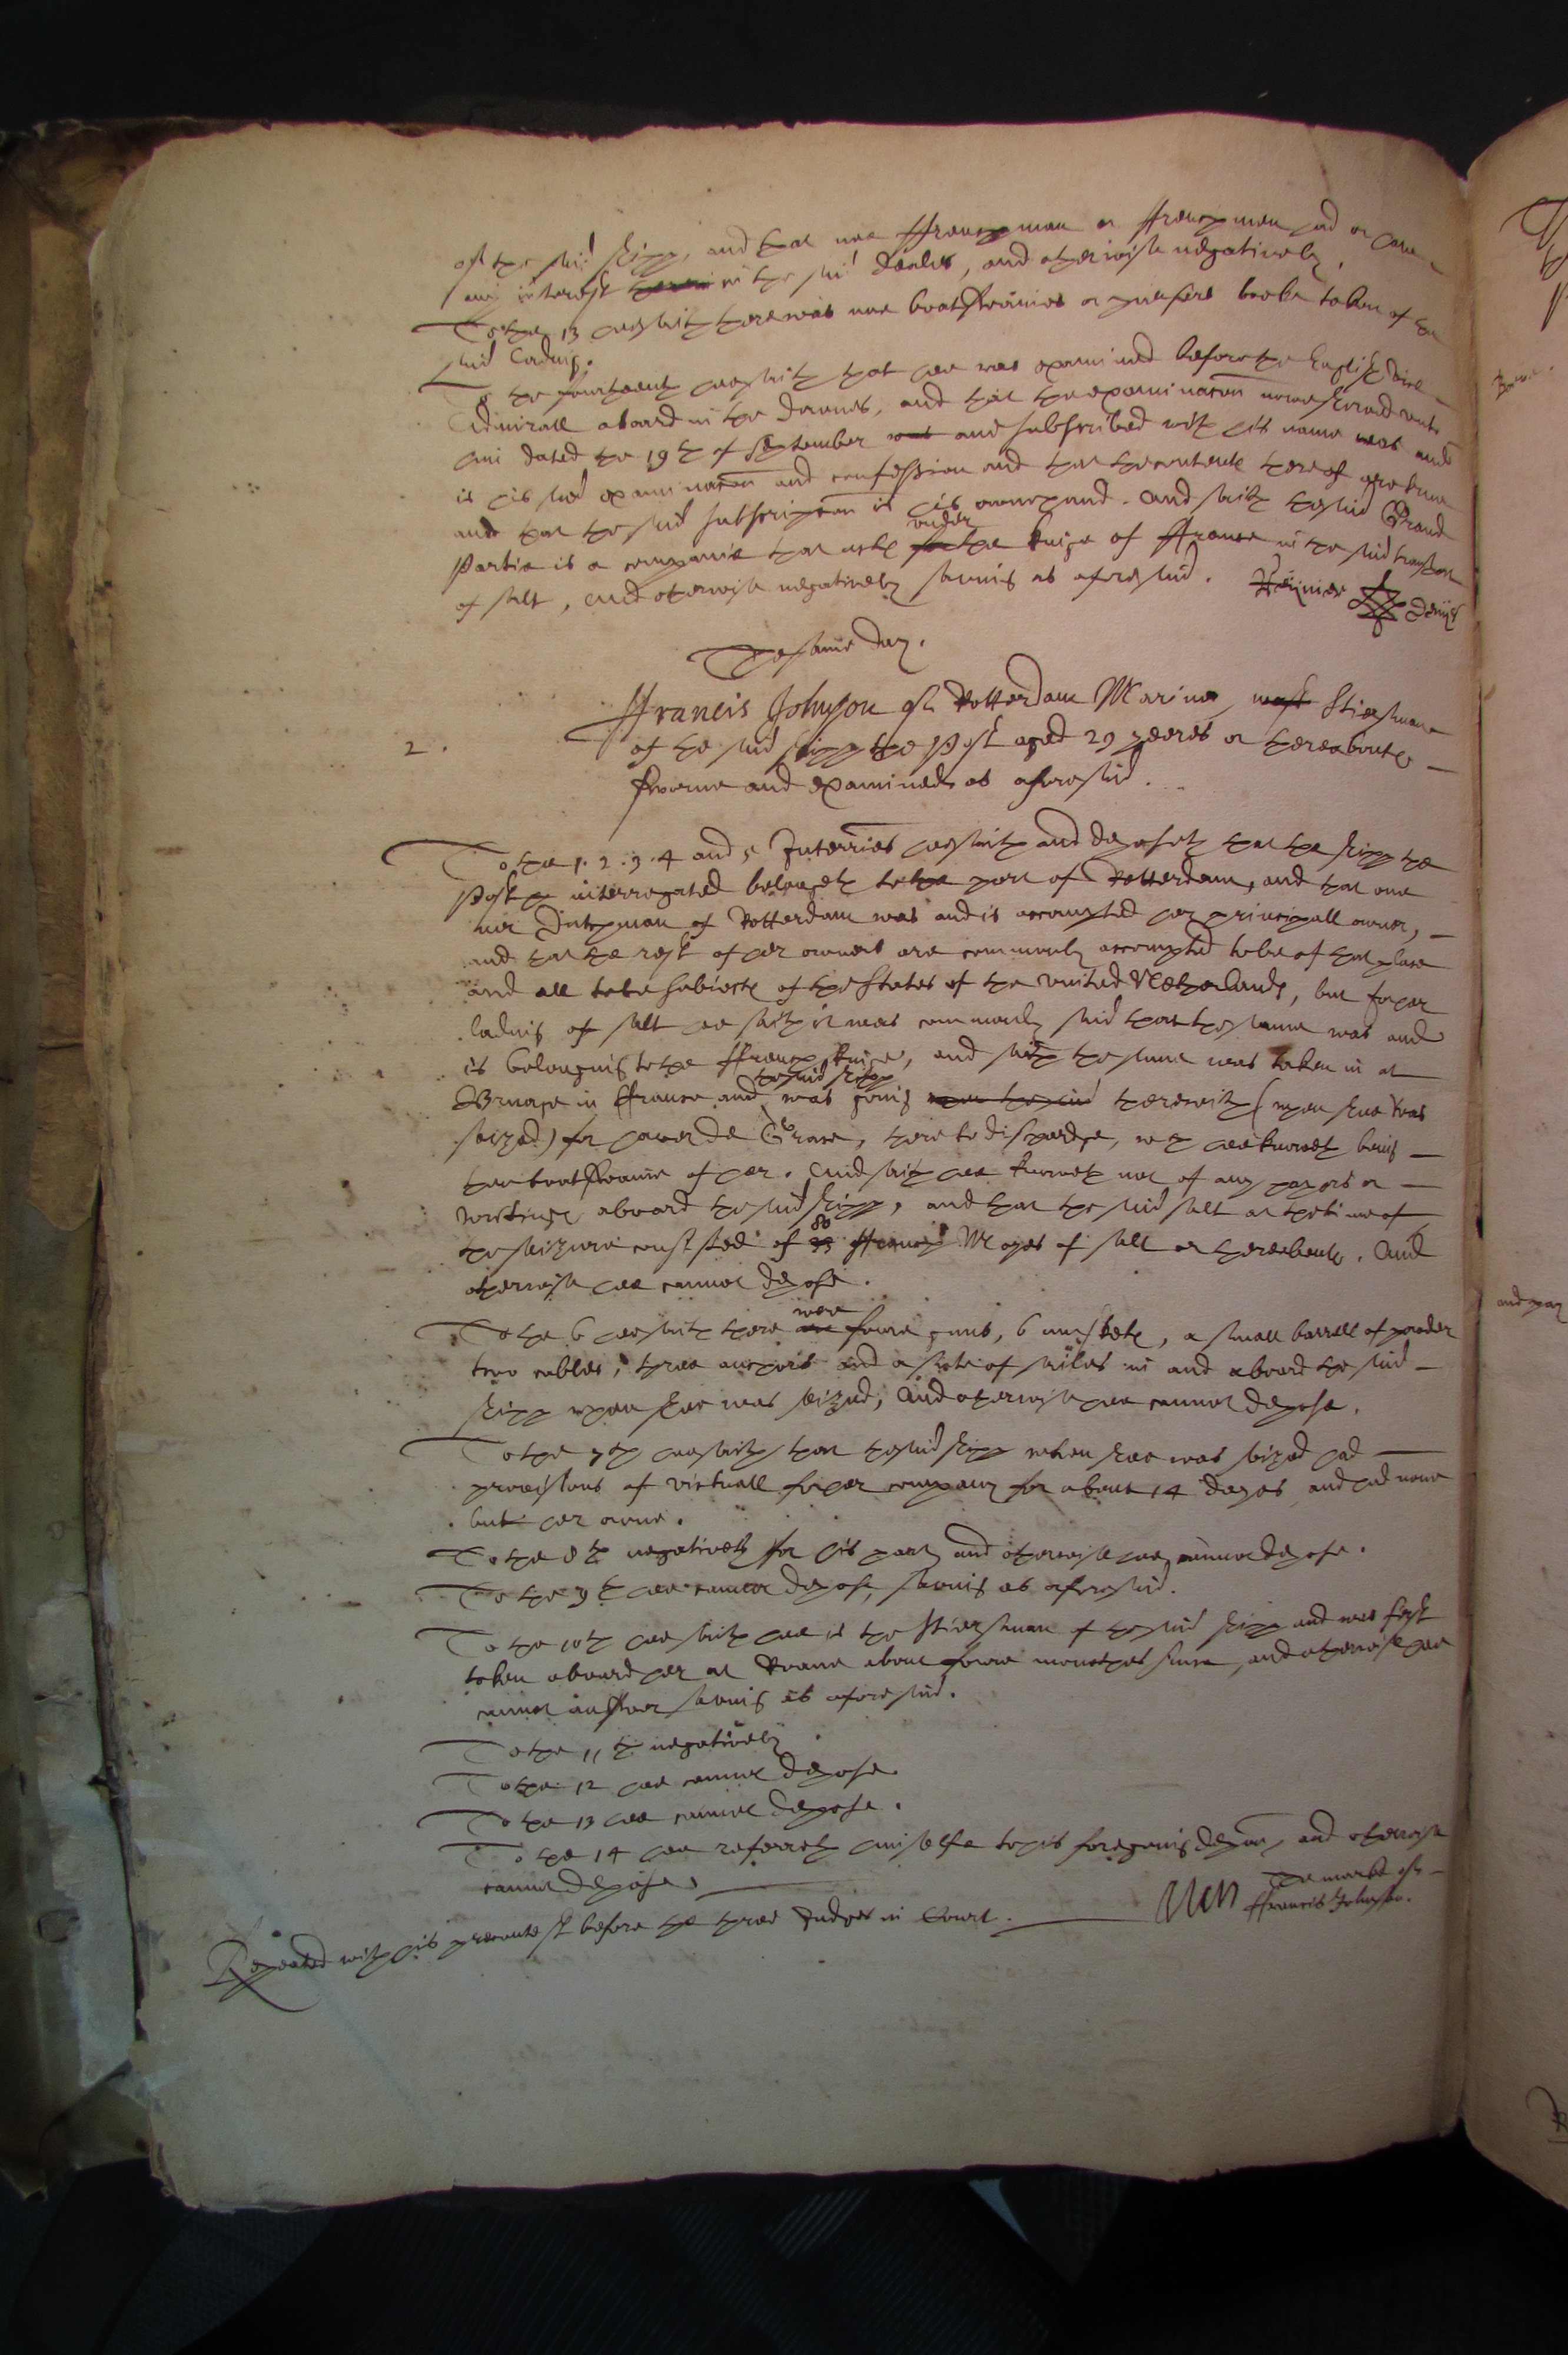 of the said shipp, and that noe ffrenchman or ffrenchmen had or have
any interest therein in the said dealer, and otherwise negatively.
To the 13 hee saith there was noe boatswaines or pursers booke taken of the
said lading.
To the fourteenth hee saith that hee was examined before the English vice
Admirall aboard in the downes, and that the examinacon nowe shewed unto
him dated the 19th of September was and subscribed with his name was and
is his said examinacon and confession and that the contents thereof are true
and that the said subscripcon is his owne hand. And saith the said Grand
Partie is a companie that acts for under the kinge of ffrance in the said transport
of salt, and otherwise negatively saving as aforesaid. Reijnier denijs
The same day.
2.
ffrancis Johnson of Rotterdam Mariner, mast Stiersman
of the said shipp the Post aged 29 yeeres or thereabouts
sworne and examined as aforesaid.
To the 1. 2. 3. 4 and 5 Interries hee saith and deposeth that the shipp the
Post interrogated belongeth to the port of Rotterdam, and that one
her Dutchman of Rotterdam was and is accompted her principall owner,
and that the rest of her owners are commonly accompted to be of that place
and all to be subiects of the States of the United Netherlands, but for her
lading of salt hee saith it was commonly said that the same was and
is belonging to the ffrench kinge, and saith the same was taken in at
Bruage in ffrance and the said shipp was going when the said therewith (when shee was
seized) for haver de Grace, there to discharge, wch hee knoweth being
then boatswaine of her. And saith hee knoweth not of any papers or
writings aboard the said shipp, and that the said salt at the time of
the seizure consisted of 80 ffrench Moyes of salt or thereabouts. And
otherwise hee cannot depose.
To the 6 hee saith there are were foure guns, 6 muskets, a small barrell of powder
two cables, three anchors and a sute of sailes in and aboard the said
shipp when shee was seized, And otherwise hee cannot depose.
To the 7th hee saith that the said shipp when shee was seized had
provisions of victuall for her company for about 14 dayes and had none
but her owne.
To the 8th negatively for his part, and otherwise hee cannot depose.
To the 9th hee cannot depose, saving as aforesaid.
To the 10th hee saith hee is the Stiersman of the said shipp and was first
taken aboard her at Roane about foure monethes since, and otherwise hee
cannot answer saving as aforesaid.
To the 11th negatively.
To the 12 hee cannot depose.
To the 13 hee cannot depose.
To the 14 hee referreth himselfe to his foregoing depon, and otherwise
cannot depose.
The marke of
ffrancis Johnson.
Repeated with his precontest before the three Judges in Court.